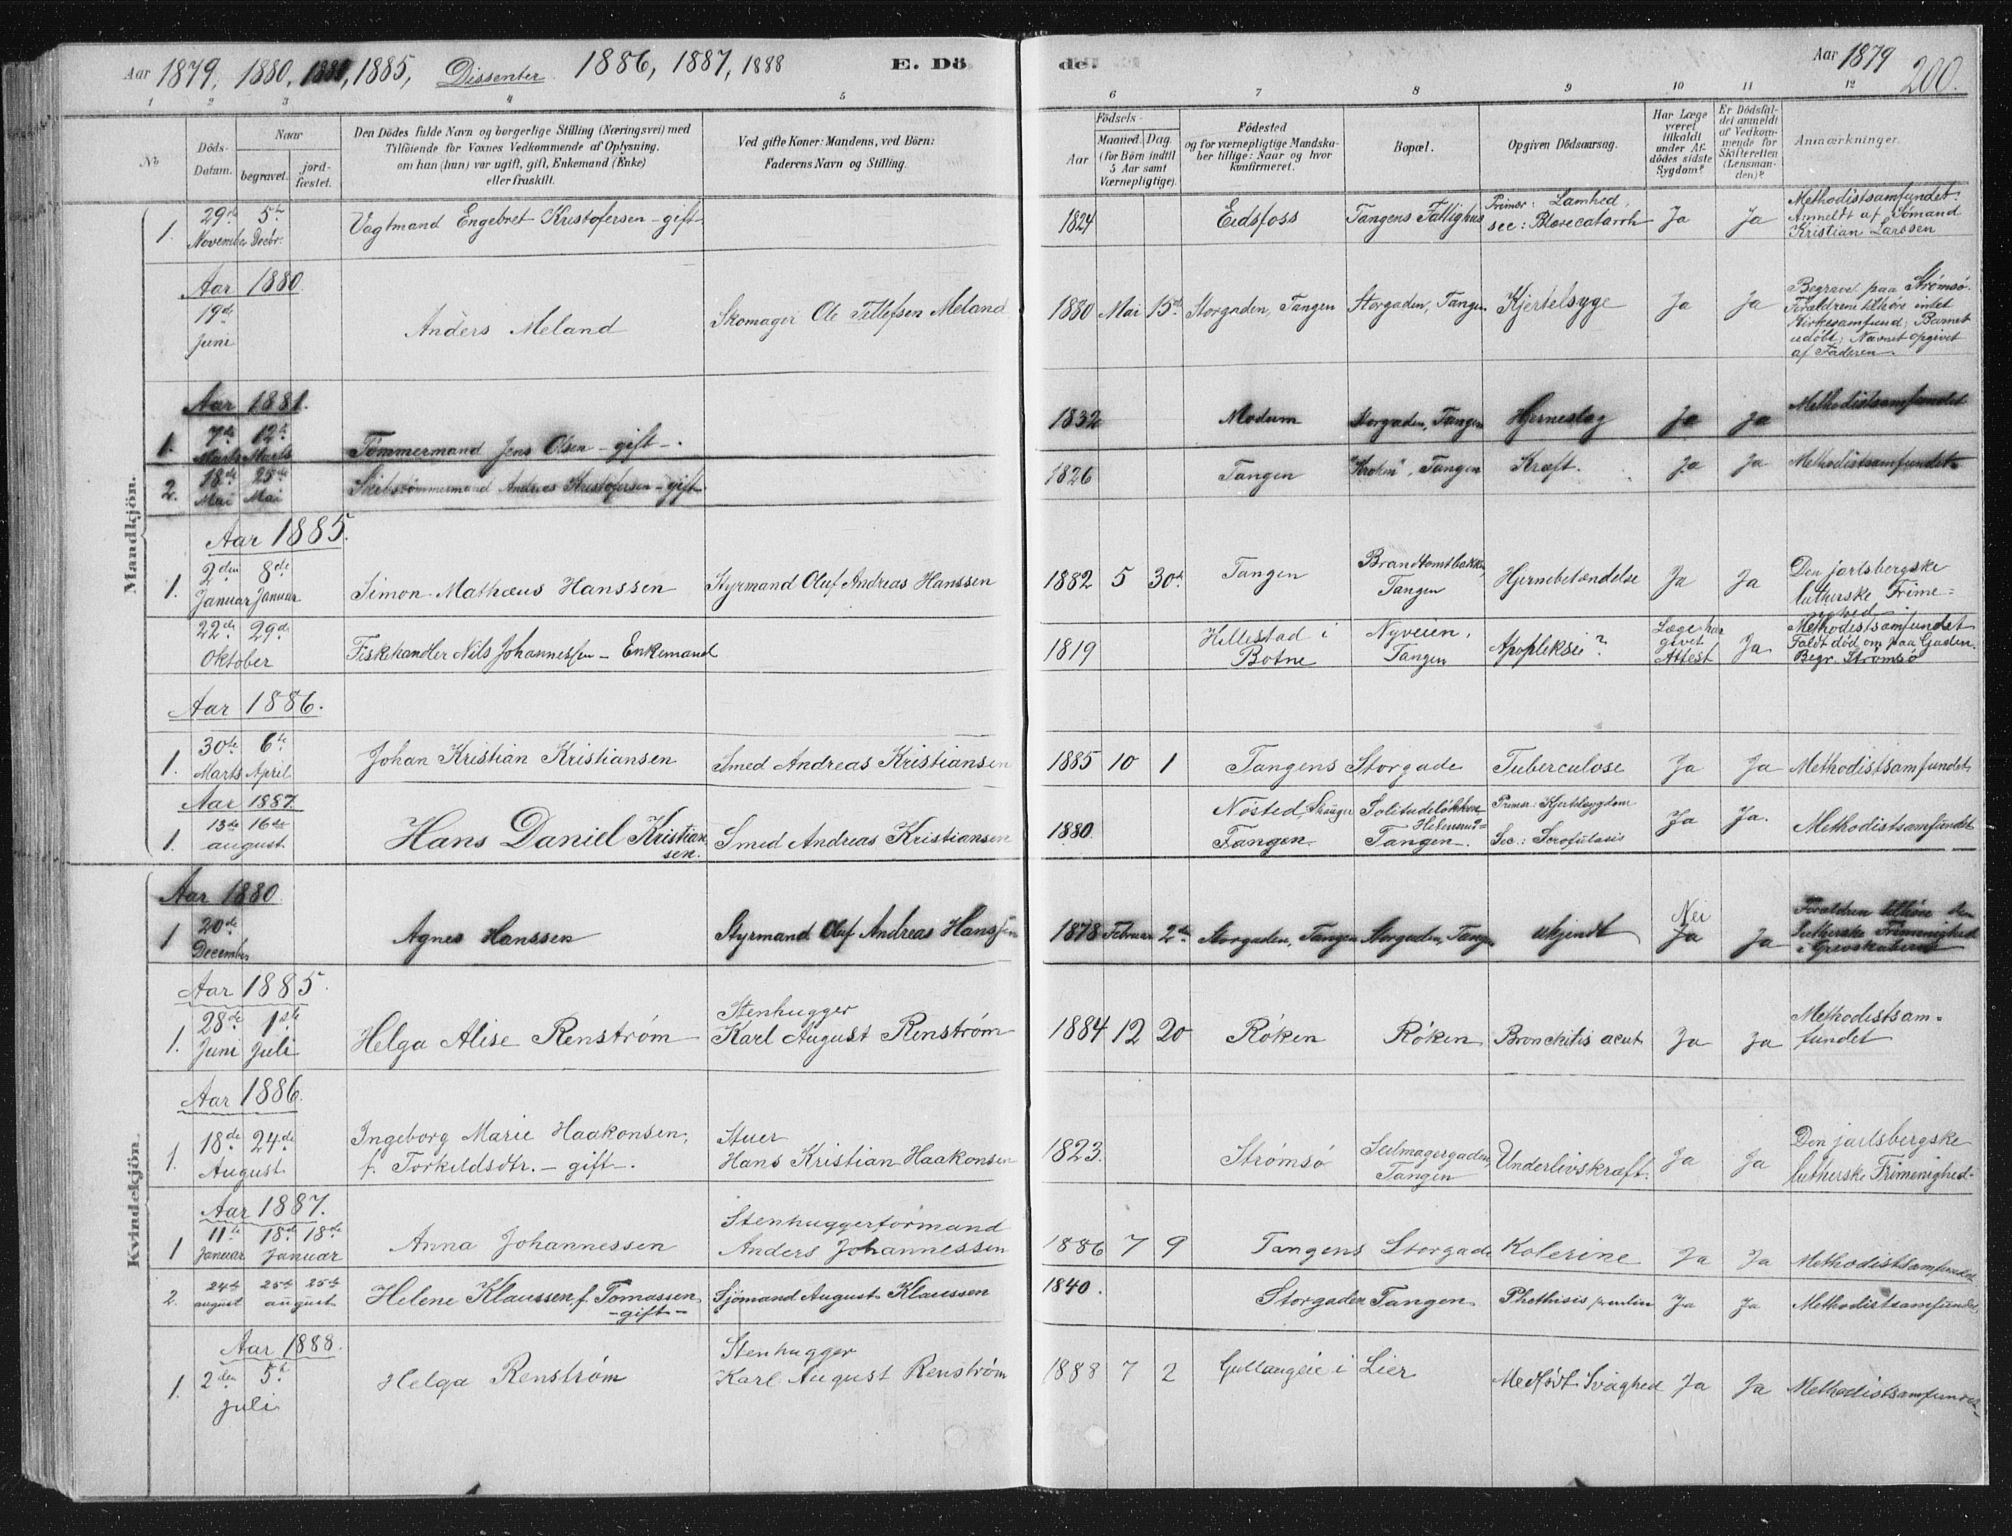 Aar 1879, 1880, 1881, 1885, Dissenter 1886, 1887, 1888 E. Dö
de. Aar 1879
200.
1 2 3 4 5 6 7 8 9 10 11 12
No Döds-Datum. Naar begravet. jord-fæstet. Den Dödes fulde Navn og borgerlige Stilling (Næringsvei) med Tilföiende for Voxnes Vedkommende af Oplysning, om han (hun) var ugift, gift, Enkemand (Enke) eller fraskilt. Ved gifte Koner: Mandens, ved Börn: Faderens Navn og Stilling. Födsels- Aar Maaned. Dag. (for Börn indtil 5 Aar samt Værnepligtige). Födested og for værnepligtige Mandskaber tillige: Naar og hvor konfirmeret. Bopæl. Opgiven Dödsaarsag. Har Læge været tilkaldt under Afdödes sidste Sygdom? Er Dödsfaldet anmeldt af Vedkommende for Skifteretten (Lensmanden)? Anmærkninger.
Mandkjön.
1. 29de November 5te Decbr. Vagtmand Engebret Kristofersen - gift 1824 Eidsfoss Tangens Fattighus Primær: Lamhed, sec: Blærecatarrh Ja Ja Methodistsamfundet. Anmeldt af Sømand Kristian Larssen
Aar 1880
19de juni Anders Meland Skomager Ole Tellefsen Meland 1880 Mai 15de Storgaden, Tangen Storgaden, Tangen Kjertelsyge Ja Ja Begravet paa Strømsø. Forældrene tilhøre intet Kirkesamfund; Barnet udöbt; Navnet opgivet af Faderen.
Aar 1881.
1. 7de Marts 12te Marts Tömmermand Jens Olsen - gift -. 1832 Modum Storgaden, Tangen Hjerneslag Ja Ja Methodistsamfundet
2. 18de Mai 25de Mai Skibstömmermand Andreas Kristofersen - gift 1826 Tangen Tangen Kræft. Ja Ja Methodistsamfundet
Aar 1885.
1. 2den Januar 8de Januar Simon Mathæus Hanssen Styrmand Oluf Andreas Hanssen 1882 5 30te Tangen Brandtomtbakken, Tangen Hjernebetændelse Ja Ja Den jarlsbergske lutherske Frimenighed.
22de 29de Oktober Fiskehandler Nils Johannessen - Enkemand 1819 Hillestad i Botne Nyveien, Tangen Apopleksi? Læge har givet Attest Ja Methodistsamfundet Faldt död om paa Gaden. Begr. Strømsø
Aar 1886.
1. 30te Marts 6te April Johan Kristian Kristiansen Smed Andreas Kristiansen 1885 10 1 Tangens Storgade Tuberculose Ja Ja Methodistsamfundet
Aar 1887.
1. 13de 16de august Hans Daniel Kristiansen. Smed Andreas Kristiansen 1880 Nøsted, Skouger Tangen Solitudeløkken Tangen. Primær: Kjertelsygdom Sec.: Scrofulosis Ja Ja. Methodistsamfundet
Kvindekjön.
Aar 1880
1 20de December Agnes Hanssen Styrmand Oluf Andreas Hanssen 1878 Februar 2de Storgaden, Tangen Storgaden, Tangen ukjendt Nei Ja Ja Forældren tilhøre den lutherske Frimenighed i Grevskaberne
Aar 1885.
1. 28de Juni 1ste Juli Helga Alise Renström Stenhugger Karl August Renström 1884 12 20 Røken Røken Bronchitis acut Ja Ja Methodistsamfundet
Aar 1886.
1. 18de 24de August Ingeborg Marie Haakonsen, f. Torkildsdtr. - gift -. Stuer Hans Kristian Haakonsen 1823. Strømsø Seilmagergaden, Tangen Underlivskræft. Ja Ja Den jarlsbergske lutherske Frimenighed.
Aar 1887.
1 11te Januar 18de 18de Januar Anna Johannessen Stenhuggerformand Anders Johannessen 1886 7 9 Tangens Storgade Kolerine Ja Ja Methodistsamfundet
2. 24de august 25de 25de august Helene Klaussen f. Tomassen - gift - Sjömand August Klaussen 1840. Storgaden Tangen Phethisis pulm Ja Ja Methodistsamfundet
Aar 1888.
1. 2den 5te juli Helga Renström Stenhugger Karl August Renström 1888 7 2 Gullaugeie i Lier Medfödt Svaghed Ja Ja Methodistsamfundet